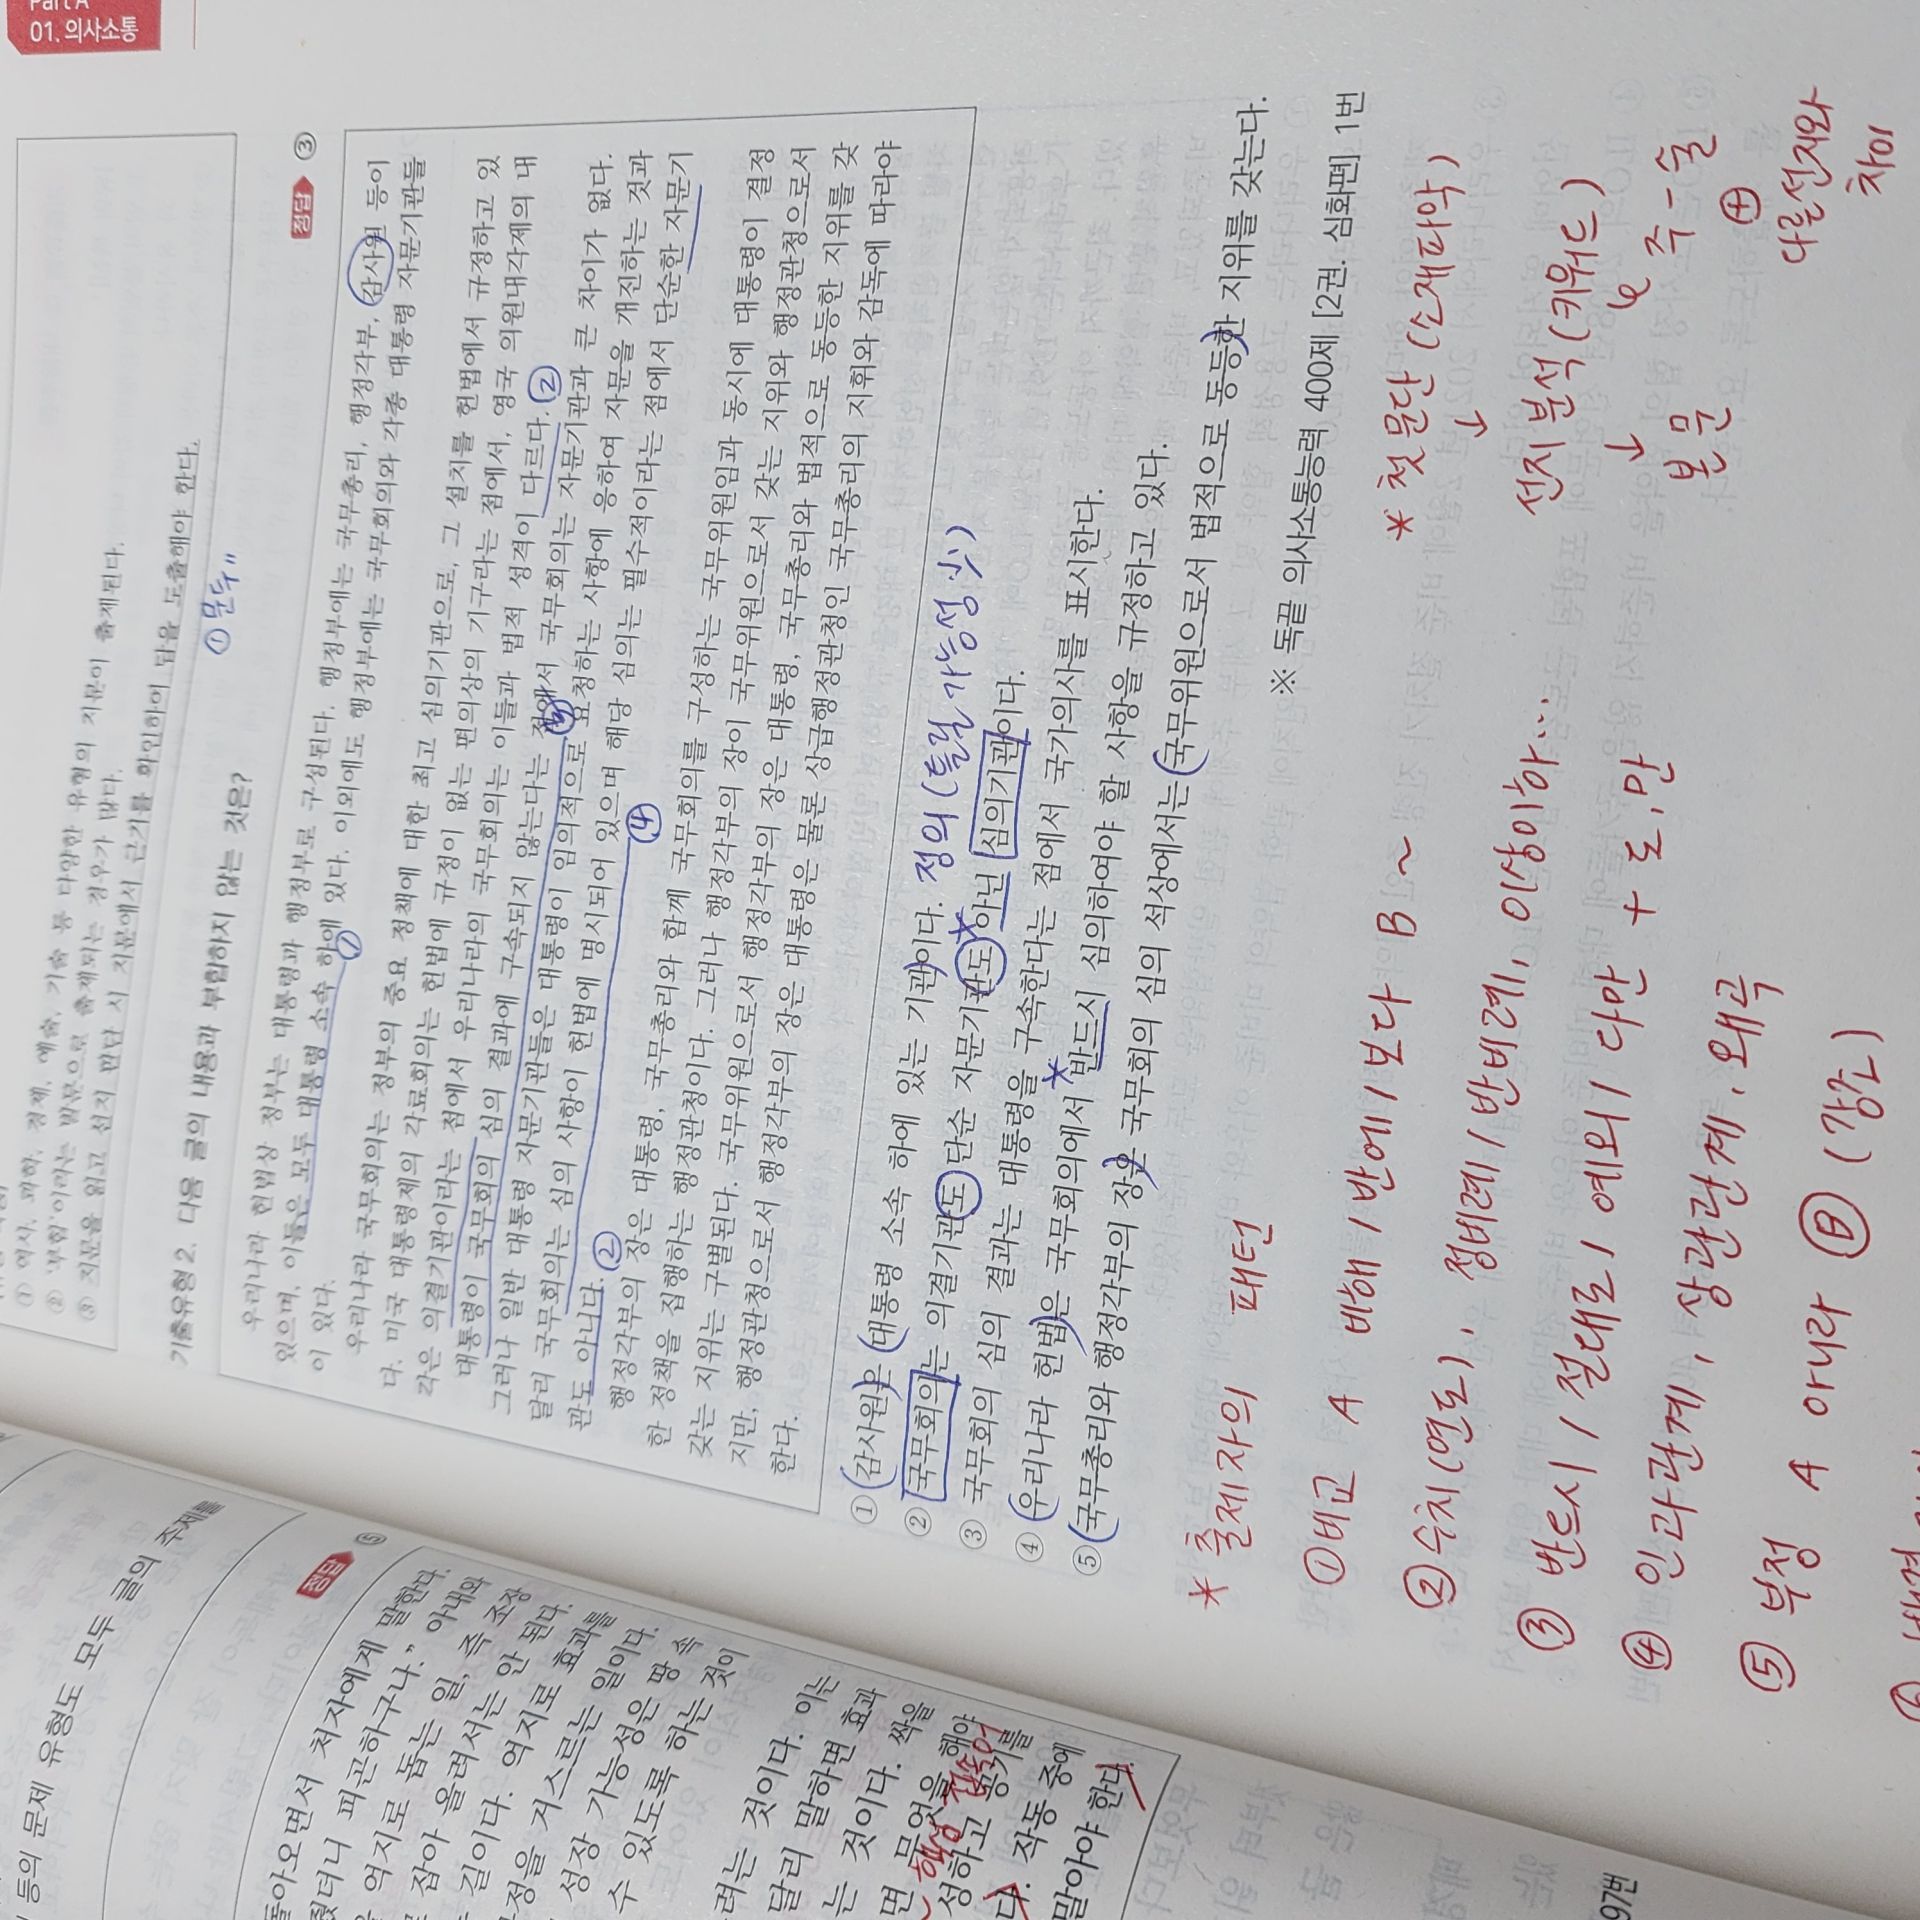 Part A
01. 의사소통
① 역사, 과학, 경제, 예술, 기술 등 다양한 유형의 지문이 출제된다.
② '부합'이라는 발문으로 출제되는 경우가 많다.
③ 지문을 읽고 선지 판단 시 지문에서 근거를 확인하여 답을 도출해야 한다.
기출유형 2. 다음 글의 내용과 부합하지 않는 것은?
① 문두"
정답 ③
우리나라 헌법상 정부는 대통령과 행정부로 구성된다. 행정부에는 국무총리, 행정각부, 감사원 등이
있으며, 이들은 모두 대통령 소속 하에 있다. 이외에도 행정부에는 국무회의와 각종 대통령 자문기관들
이 있다.
①
우리나라 국무회의는 정부의 중요 정책에 대한 최고 심의기관으로, 그 설치를 헌법에서 규정하고 있
다. 미국 대통령제의 각료회의는 헌법에 규정이 없는 편의상의 기구라는 점에서, 영국 의원내각제의 내
각은 의결기관이라는 점에서 우리나라의 국무회의는 이들과 법적 성격이 다르다. ②
대통령이 국무회의 심의 결과에 구속되지 않는다는 점에서 국무회의는 자문기관과 큰 차이가 없다.
그러나 일반 대통령 자문기관들은 대통령이 임의적으로 요청하는 사항에 응하여 자문을 개진하는 것과
달리 국무회의는 심의 사항이 헌법에 명시되어 있으며 해당 심의는 필수적이라는 점에서 단순한 자문기
관도 아니다. ②
④
행정각부의 장은 대통령, 국무총리와 함께 국무회의를 구성하는 국무위원임과 동시에 대통령이 결정
한 정책을 집행하는 행정관청이다. 그러나 행정각부의 장이 국무위원으로서 갖는 지위와 행정관청으로서
갖는 지위는 구별된다. 국무위원으로서 행정각부의 장은 대통령, 국무총리와 법적으로 동등한 지위를 갖
지만, 행정관청으로서 행정각부의 장은 대통령은 물론 상급행정관청인 국무총리의 지휘와 감독에 따라야
한다.
① 감사원은 대통령 소속 하에 있는 기관이다. 정의 (틀릴 가능성 少)
② 국무회의는 의결기관도 단순 자문기관도 아닌 심의기관이다.
③ 국무회의 심의 결과는 대통령을 구속한다는 점에서 국가의사를 표시한다.
④ 우리나라 헌법은 국무회의에서 반드시 심의하여야 할 사항을 규정하고 있다.
⑤ 국무총리와 행정각부의 장은 국무회의 심의 석상에서는 국무위원으로서 법적으로 동등한 지위를 갖는다.
※ 독끝 의사소통능력 400제 [2권. 심화편] 1번
* 출제자의 패턴
① 비교 A 비해 / 반에 / 보다 B ~
② 수치(연도), 정비례 / 반비례, 이상이하...
③ 반드시 / 절대로 / 예외 / 다만 + 도, 만
④ 인과관계, 상관관계, 왜곡
⑤ 부정 A 아니라 Ⓑ (강조)
* 첫 문단 (소재파악)
↓
선지 분석 (키워드)
↓
본문
주 - 술
⊕
다른선지와
차이
등의 문제 유형도 모두 글의 주제를
정답 ⑤
돌아오면서 처자에게 말한다.
줬더니 피곤하구나." 아내와
억지로 돕는 일, 즉 조장
잡아 올려서는 안 된다.
길이다. 억지로 효과를
정을 거스르는 일이다.
성장 가능성은 땅 속
수 있도록 하는 것이
려는 것이다. 이는
달리 말하면 효과
는 것이다. 싹을
면 무엇을 해야
핵심
성하고
다. 작동 중에
말아야 한다.
97번